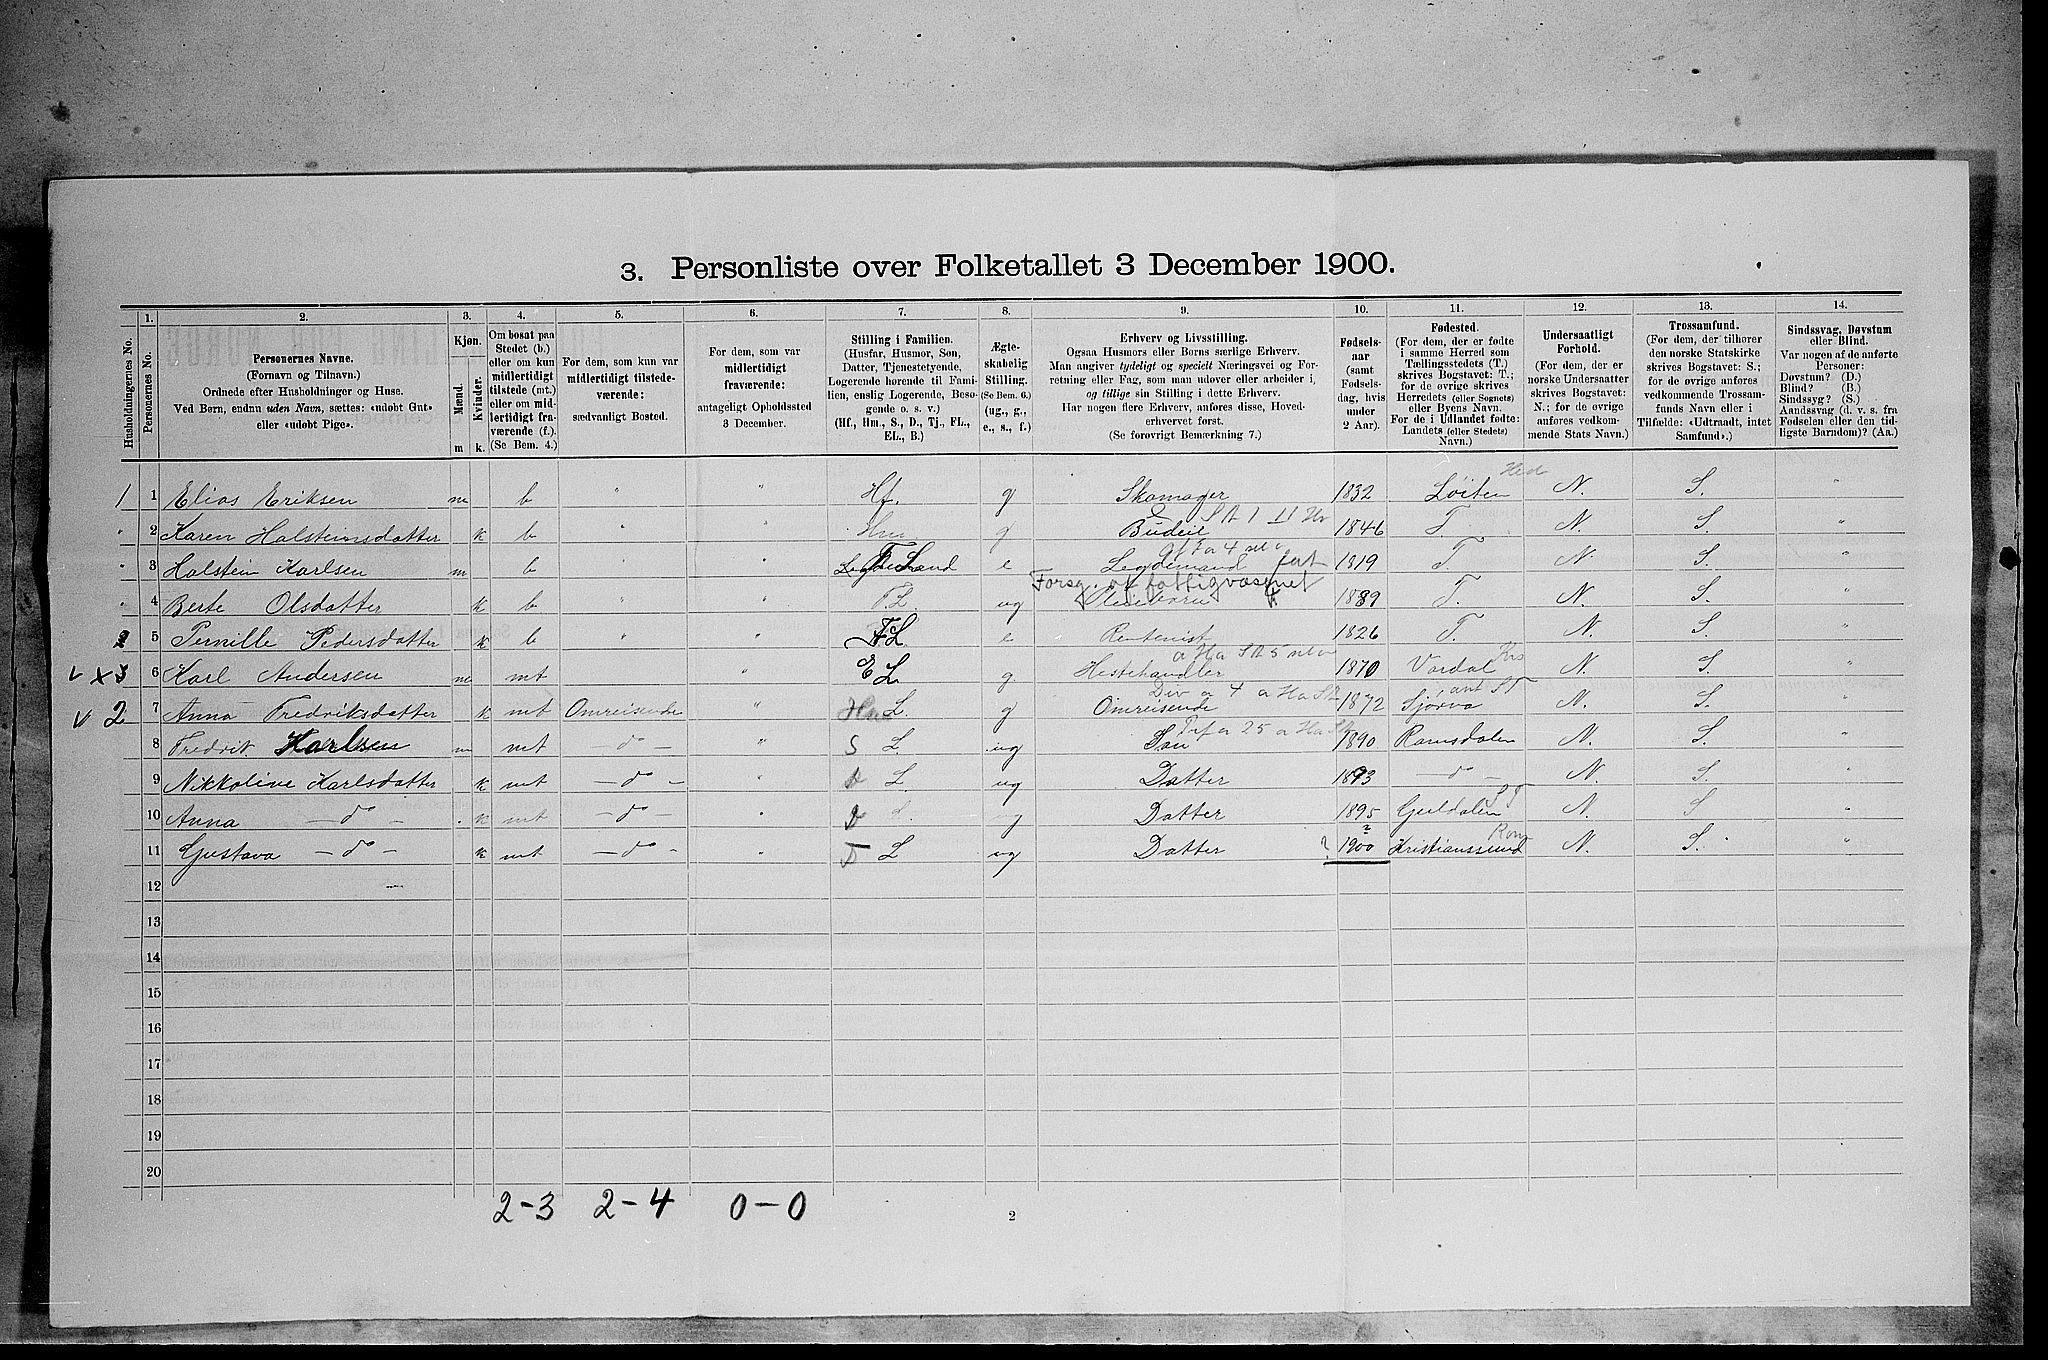 3. Personliste over Folketallet 3 December 1900.
1. 2. 3. 4. 5. 6. 7. 8. 9. 10. 11. 12. 13. 14.
Husholdningernes No.
Personernes No.
Personernes Navne.
(Fornavn og Tilnavn.)
Ordnede efter Husholdninger og Huse.
Ved Børn, endnu uden Navn, sættes: «udøbt Gut»
eller «udøbt Pige».
Kjøn.
Mænd. Kvinder.
m k.
Om bosat paa
Stedet (b.)
eller om kun
midlertidigt
tilstede (mt.)
eller om mid-
lertidigt fra-
værende (f.).
(Se Bem. 4.)
For dem, som kun var
midlertidigt tilstede-
værende:
sædvanligt Bosted.
For dem, som var
midlertidigt
fraværende:
antageligt Opholdssted
3 December.
Stilling i Familien.
(Husfar, Husmor, Søn,
Datter, Tjenestetyende,
Logerende hørende til Fami-
lien, enslig Logerende, Besø-
gende o. s. v.)
(Hf., Hm., S., D., Tj., FL.,
EL., B.)
Ægte-
skabelig
Stilling.
(Se Bem. 6.)
(ug., g.,
e., s., f.)
Erhverv og Livsstilling.
Ogsaa Husmors eller Børns særlige Erhverv.
Man angiver tydeligt og specielt Næringsvei og For-
retning eller Fag, som man udøver eller arbeider i,
og tillige sin Stilling i dette Erhverv.
Har nogen flere Erhverv, anføres disse, Hoved-
erhvervet først.
(Se forøvrigt Bemærkning 7.)
Fødsels-
aar
(samt
Fødsels-
dag, hvis
under
2 Aar).
Fødested.
(For dem, der er fødte
i samme Herred som
Tællingsstedets (T.)
skrives Bogstavet: T.;
for de øvrige skrives
Herredets (eller Sognets)
eller Byens Navn.
For de i Udlandet fødte:
Landets (eller Stedets)
Navn.)
Undersaatligt
Forhold.
(For dem, der er
norske Undersaatter
skrives Bogstavet:
N.; for de øvrige
anføres vedkom-
mende Stats Navn.)
Trossamfund.
(For dem, der tilhører
den norske Statskirke
skrives Bogstavet: S.;
for de øvrige anføres
vedkommende Trossam-
funds Navn eller i
Tilfælde: «Udtraadt, intet
Samfund».)
Sindssvag, Døvstum
eller Blind.
Var nogen af de anførte
Personer:
Døvstum? (D.)
Blind? (B.)
Sindssyg? (S.)
Aandssvag (d. v. s. fra
Fødselen eller den tid-
ligste Barndom)? (Aa.)
Hed
1 1 Elias Eriksen m b " " Hf. g Skomager 1832 Løiten N. S. "
" 2 Karen Halsteinsdatter k b " " Hm g Budeie 1846 T. N. S. "
" 3 Halstein Karlsen m b " " FL e Legdemand 1819 T. N. S. "
Forsg. af fattigvæsenet
" 4 Berte Olsdatter k b " " F.L. ug Pleiebarn 1889 T. N. S. "
2 5 Pernille Pedersdatter k b " " FL e Rentenist 1826 T. N. S. "
v x 3 6 Karl Andersen m mt " EL g Hestehandler 1870 Værdal N. S. "
v 2 7 Anna Fredriksdatter k mt Omreisende " L. g Omreisende 1872 Sjørva N. S. "
8 Fredrik Karlsen m mt — do — " S L. ug Søn 1890 Romsdalen N. S. "
9 Nikkoline Karlsdatter k mt — do — " D L. ug Datter 1893 — do — N. S. "
10 Anna — do — k mt — do — " D L. ug Datter 1895 Guldalen ST N. S "
Rom
11 Gustava — do — k mt — do — " D L ug Datter ? 1900 Kristianssund N. S. "
12
13
14
15
16
17
18
19
20
2-3 2-4 0-0
2